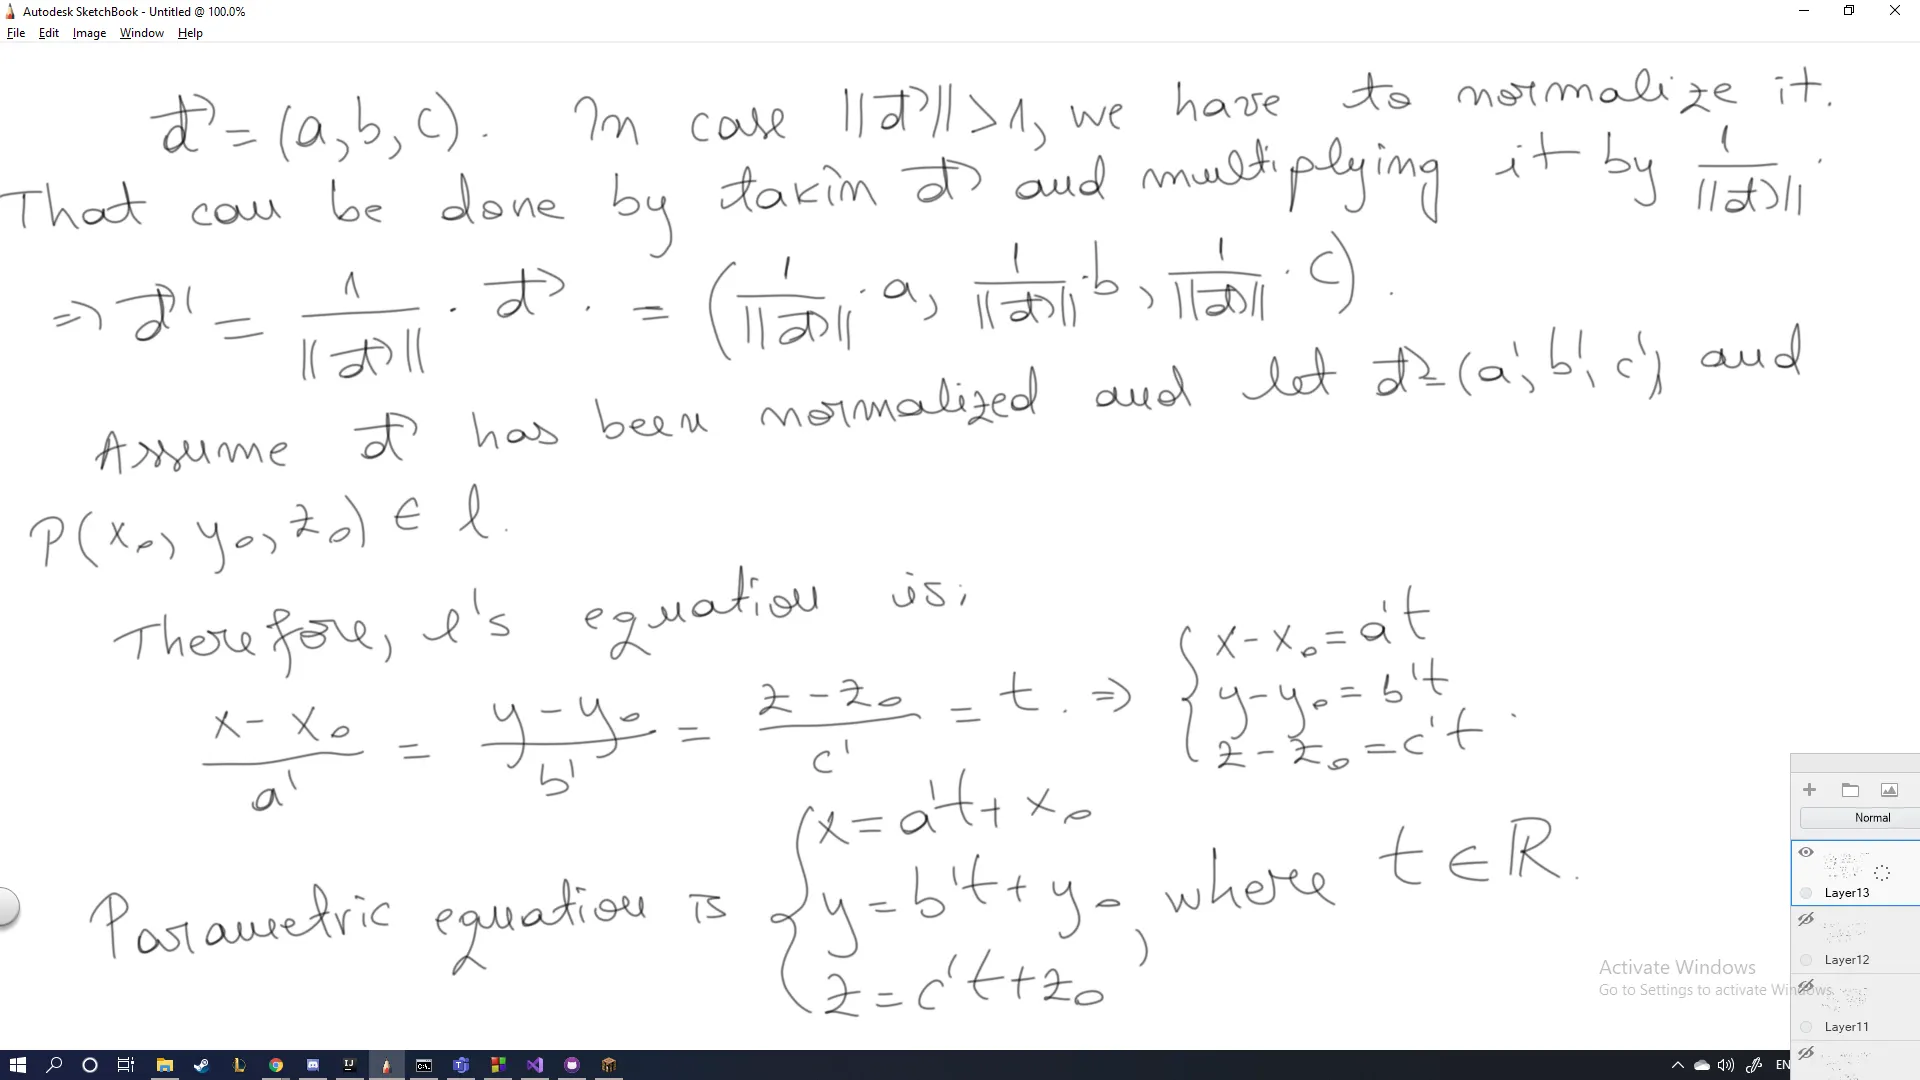 Autodesk SketchBook - Untitled @ 100.0%
File Edit Image Window Help
d⃗ = (a, b, c). In case ||d⃗|| > 1, we have to normalize it.
That can be done by takin d⃗ and multiplying it by 1/||d⃗||.
=> d⃗' = 1/||d⃗|| · d⃗. = (1/||d⃗|| · a, 1/||d⃗|| · b, 1/||d⃗|| · c).
Assume d⃗ has been normalized and let d⃗ = (a', b', c') and
P(x₀, y₀, z₀) ∈ l.
Therefore, l's equation is:
(x - x₀)/a' = (y - y₀)/b' = (z - z₀)/c' = t. => { x - x₀ = a't
y - y₀ = b't
z - z₀ = c't.
Parametric equation is { x = a't + x₀
y = b't + y₀
z = c't + z₀
, where t ∈ ℝ.
Normal
Layer13
Layer12
Layer11
Activate Windows
Go to Settings to activate Windows.
EN